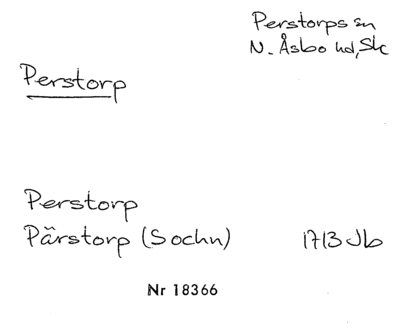 Perstorps sn
N. Åsbo hd, Sk
Perstorp
Perstorp
Pärstorp (Sochn) 1713 Jb
Nr 18366